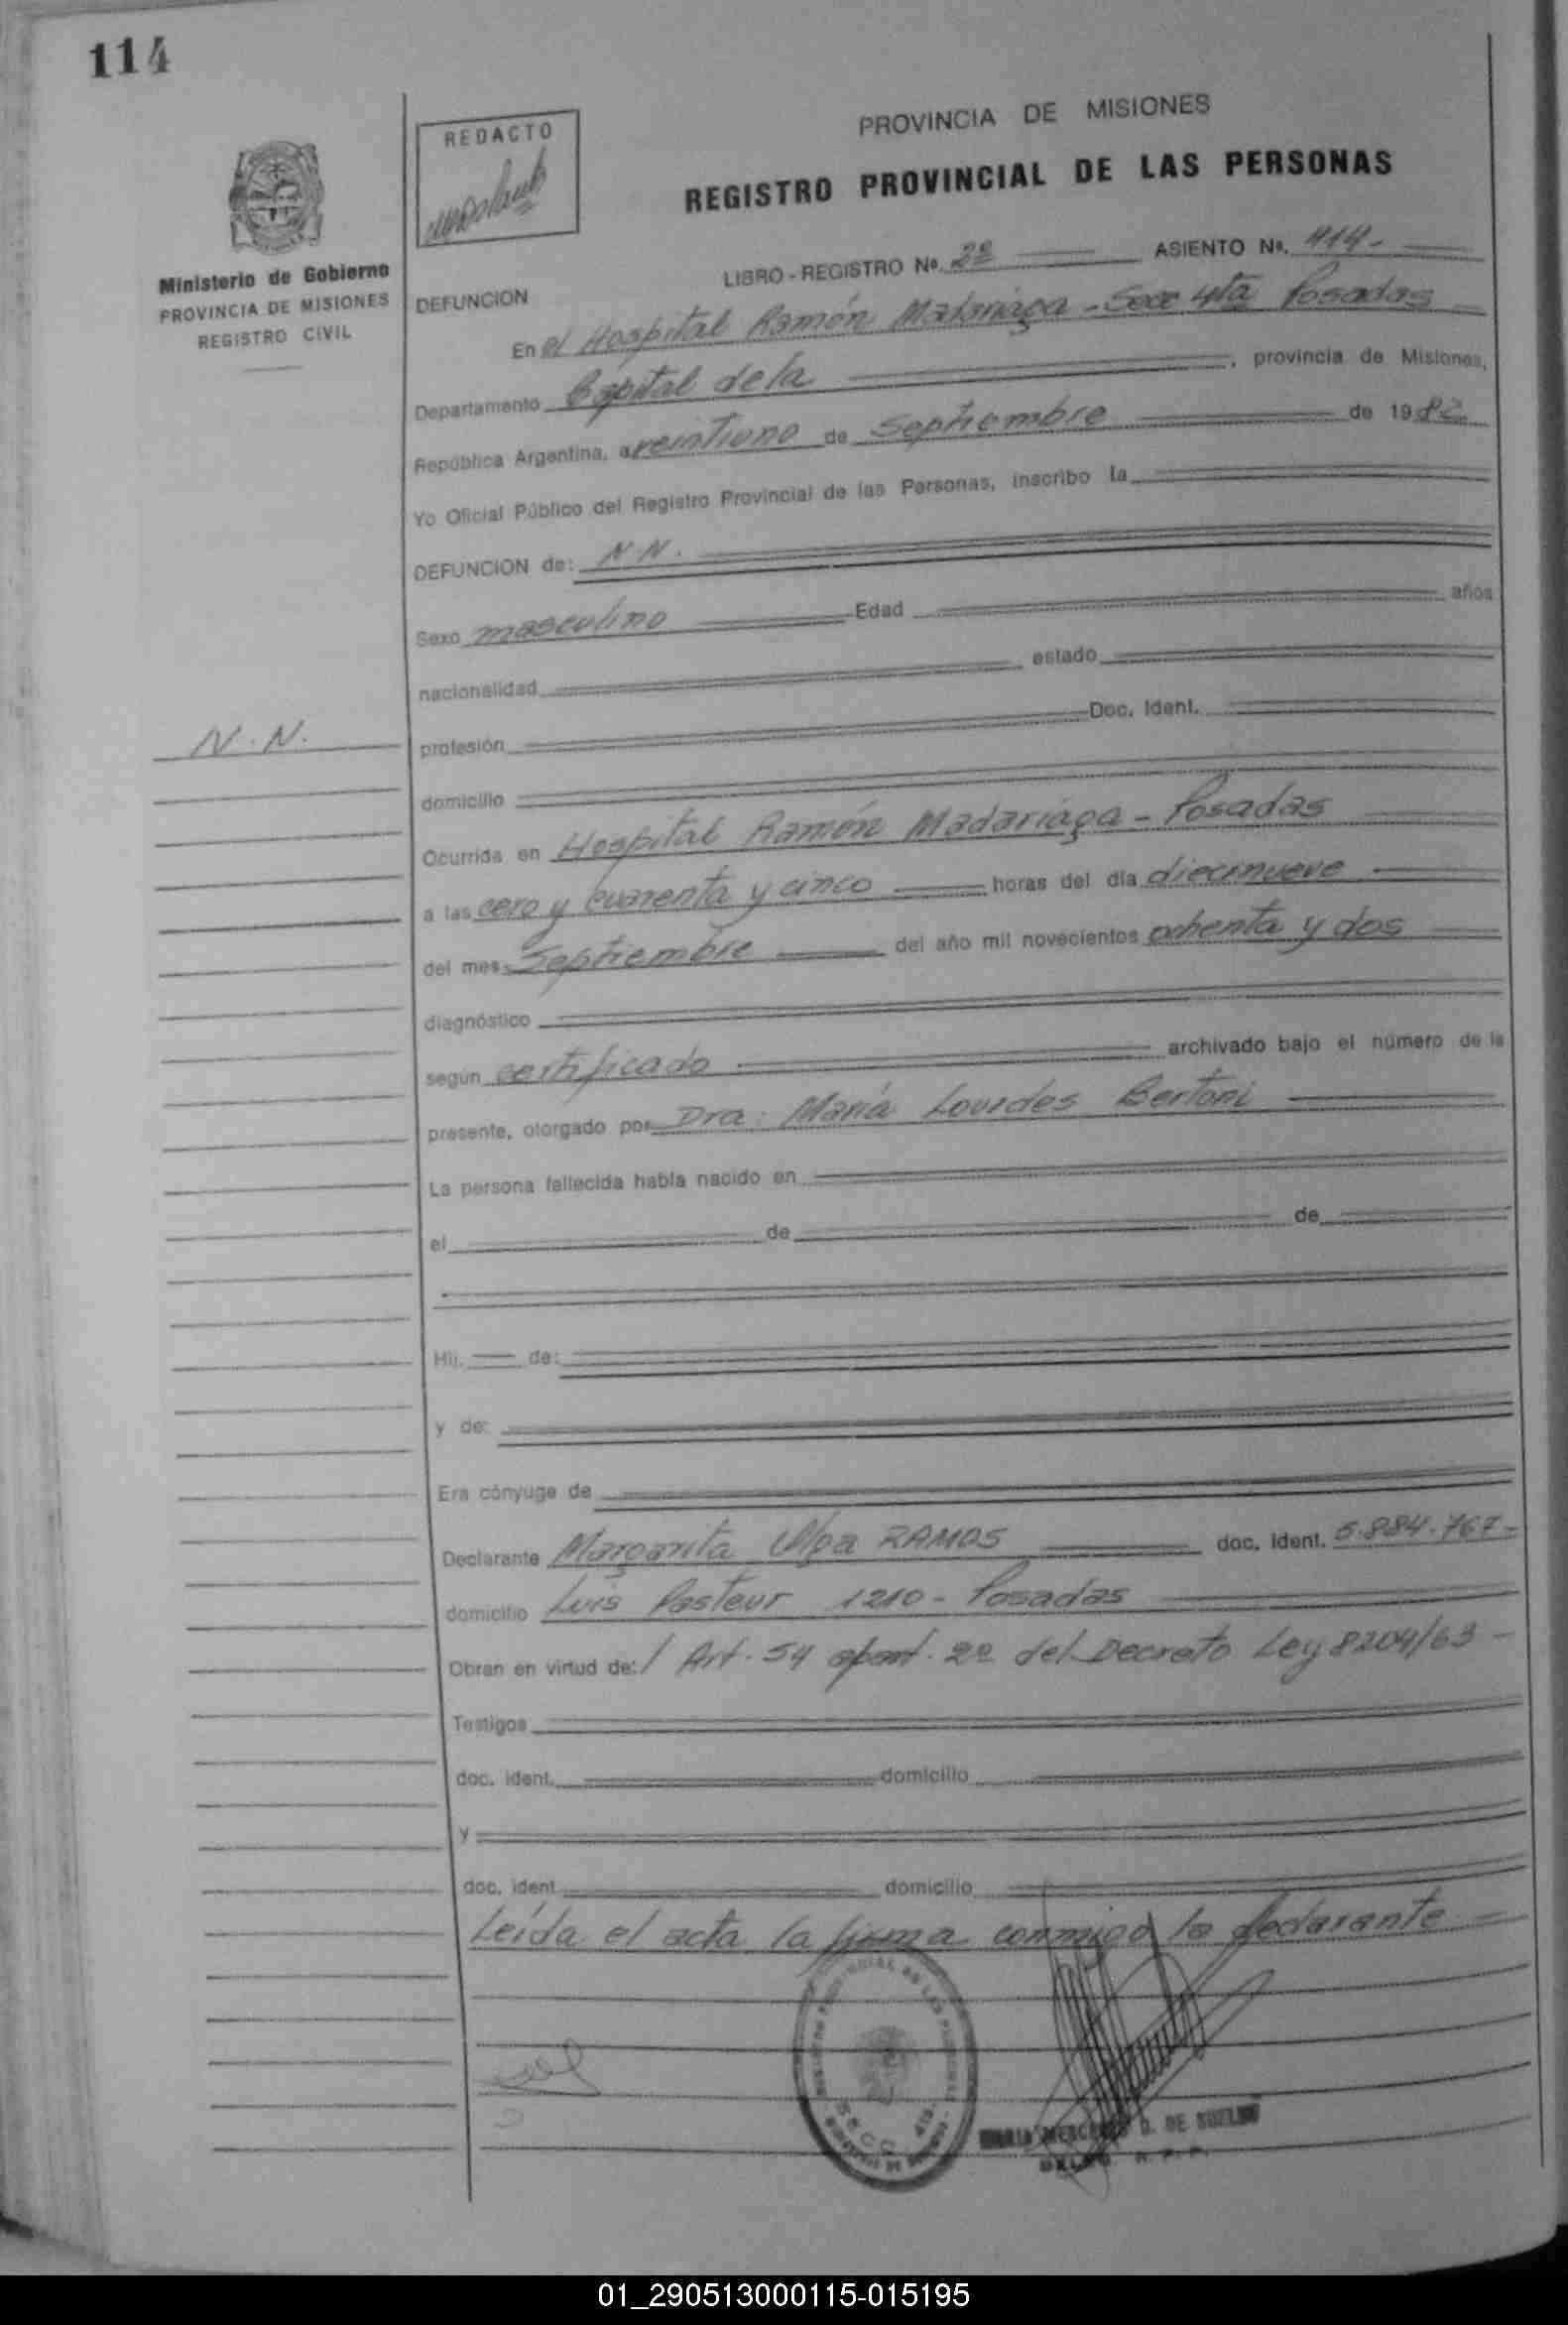 114
REDACTO
PROVINCIA DE MISIONES
REGISTRO PROVINCIAL DE LAS PERSONAS
Ministerio de Gobierno
PROVINCIA DE MISIONES
REGISTRO CIVIL
LIBRO - REGISTRO Nº. 2º ASIENTO Nº. 414-
DEFUNCION
En el Hospital Ramón Madariaga - Secc 4ta Posadas
Departamento Capital de la , provincia de Misiones,
República Argentina, a veintiuno de Septiembre de 1982
Yo Oficial Público del Registro Provincial de las Personas, inscribo la
DEFUNCION de: N.N.
Sexo masculino Edad años
nacionalidad estado
N.N.
profesión Doc. Ident.
domicilio
Ocurrida en Hospital Ramón Madariaga - Posadas
a las cero y cuarenta y cinco horas del día diecinueve
del mes Septiembre del año mil novecientos ochenta y dos
diagnóstico
según certificado archivado bajo el número de la
presente, otorgado por Dra. María Lourdes Bertoni
La persona fallecida había nacido en
el de de
Hij. de:
y de:
Era cónyuge de
Declarante Margarita Olga RAMOS doc. ident. 5.884.767-
domicilio Luis Pasteur 1210 - Posadas
Obran en virtud de: / Art. 54 apart. 2º del Decreto Ley 8204/63 -
Testigos
doc. ident. domicilio
y
doc. ident. domicilio
Leída el acta la firma conmigo la declarante
DE LAS
SECC 4ta.
MARIA MERCEDES D. DE
01_290513000115-015195